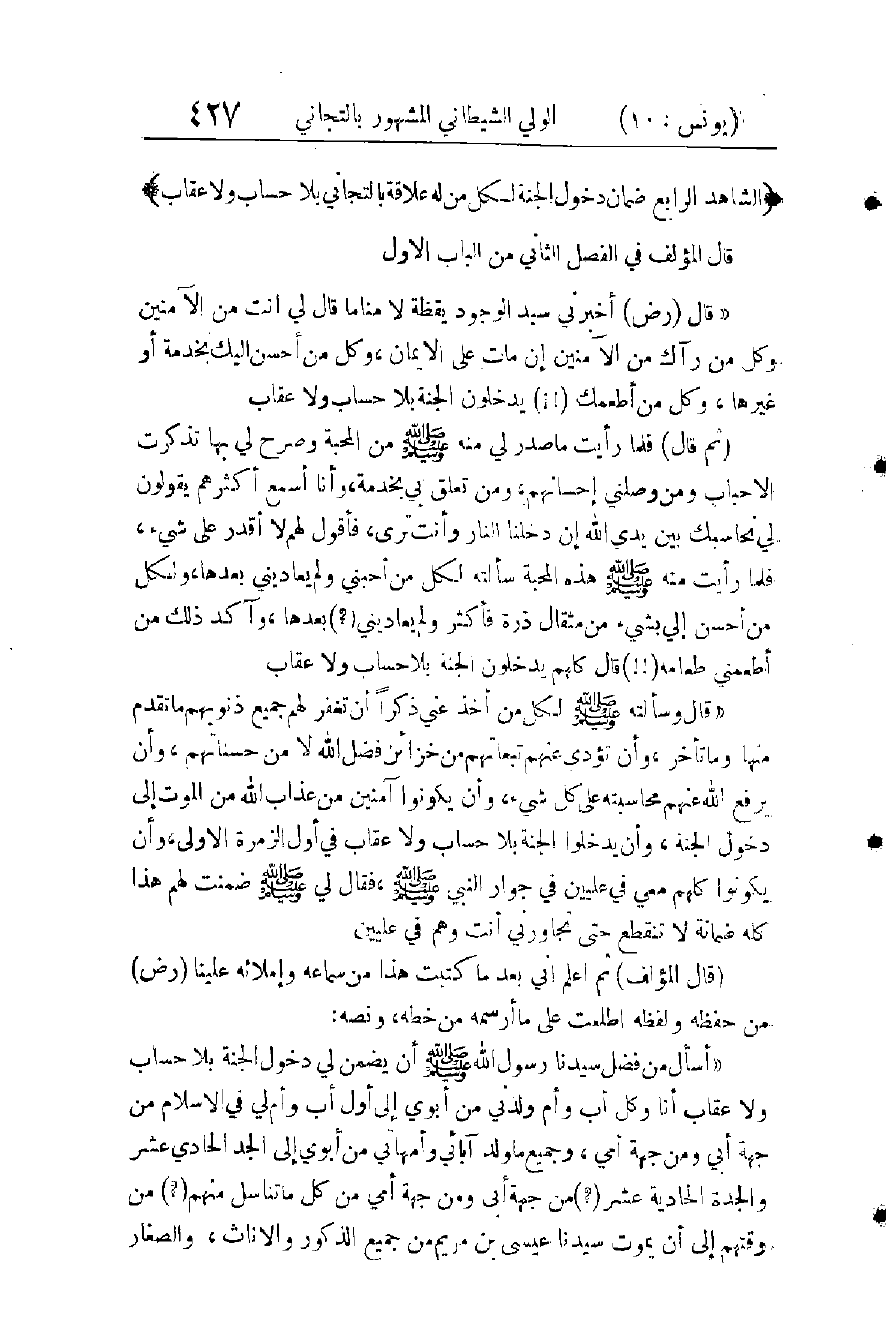 (يونس : ١٠) الولي الشيطاني المشهور بالتجاني ٤٢٧
﴿الشاهد الرابع ضمان دخول الجنة لكل من له علاقة بالتجاني بلا حساب ولا عقاب﴾
قال المؤلف في الفصل الثاني من الباب الاول
« قال (رض) أخبرني سيد الوجود يقظة لا مناما قال لي أنت من الآمنين
وكل من رآك من الآمنين إن مات على الايمان ، وكل من أحسن اليك بخدمة أو
غيرها ، وكل من أطعمك (!!) يدخلون الجنة بلا حساب ولا عقاب
(ثم قال) فلما رأيت ما صدر لي منه ﷺ من المحبة وصرح لي بها تذكرت
الاحباب ومن وصلني إحسانهم، ومن تعلق بي بخدمة، وأنا أسمع أكثرهم يقولون
لي نحاسبك بين يدي الله إن دخلنا النار وأنت ترى، فأقول لهم لا أقدر على شيء ،
فلما رأيت منه ﷺ هذه المحبة سألته لكل من أحبني ولم يعاديني بعدها، ولكل
من أحسن إلي بشيء من مثقال ذرة فأكثر ولم يعاديني (؟) بعدها ، وآكد ذلك من
أطعمني طعامه (!!) قال كلهم يدخلون الجنة بلا حساب ولا عقاب
« قال وسألته ﷺ لكل من أخذ عني ذكراً أن تغفر لهم جميع ذنوبهم ما تقدم
منها وما تأخر ، وأن تؤدى عنهم تبعاتهم من خزائن فضل الله لا من حسناتهم ، وأن
يرفع الله عنهم محاسبته على كل شيء، وأن يكونوا آمنين من عذاب الله من الموت إلى
دخول الجنة ، وأن يدخلوا الجنة بلا حساب ولا عقاب في أول الزمرة الاولى، وأن
يكونوا كلهم معي في عليين في جوار النبي ﷺ ، فقال لي ﷺ ضمنت لهم هذا
كله ضمانة لا تنقطع حتى تجاورني أنت وهم في عليين
(قال المؤلف) ثم اعلم اني بعد ما كتبت هذا من سماعه وإملائه علينا (رض)
من حفظه ولفظه اطلعت على ما أرسمه من خطه، ونصه:
« أسأل من فضل سيدنا رسول الله ﷺ أن يضمن لي دخول الجنة بلا حساب
ولا عقاب أنا وكل أب وأم ولدني من أبوي إلى أول أب وأم لي في الاسلام من
جهة أبي ومن جهة أمي ، وجميع ما ولد آبائي وأمهاتي من أبوي إلى الجد الحادي عشر
والجدة الحادية عشر (؟) من جهة أبى ومن جهة أمي من كل ما تناسل منهم (؟) من
وقتهم إلى أن يموت سيدنا عيسى بن مريم من جميع الذكور والاناث ، والصغار